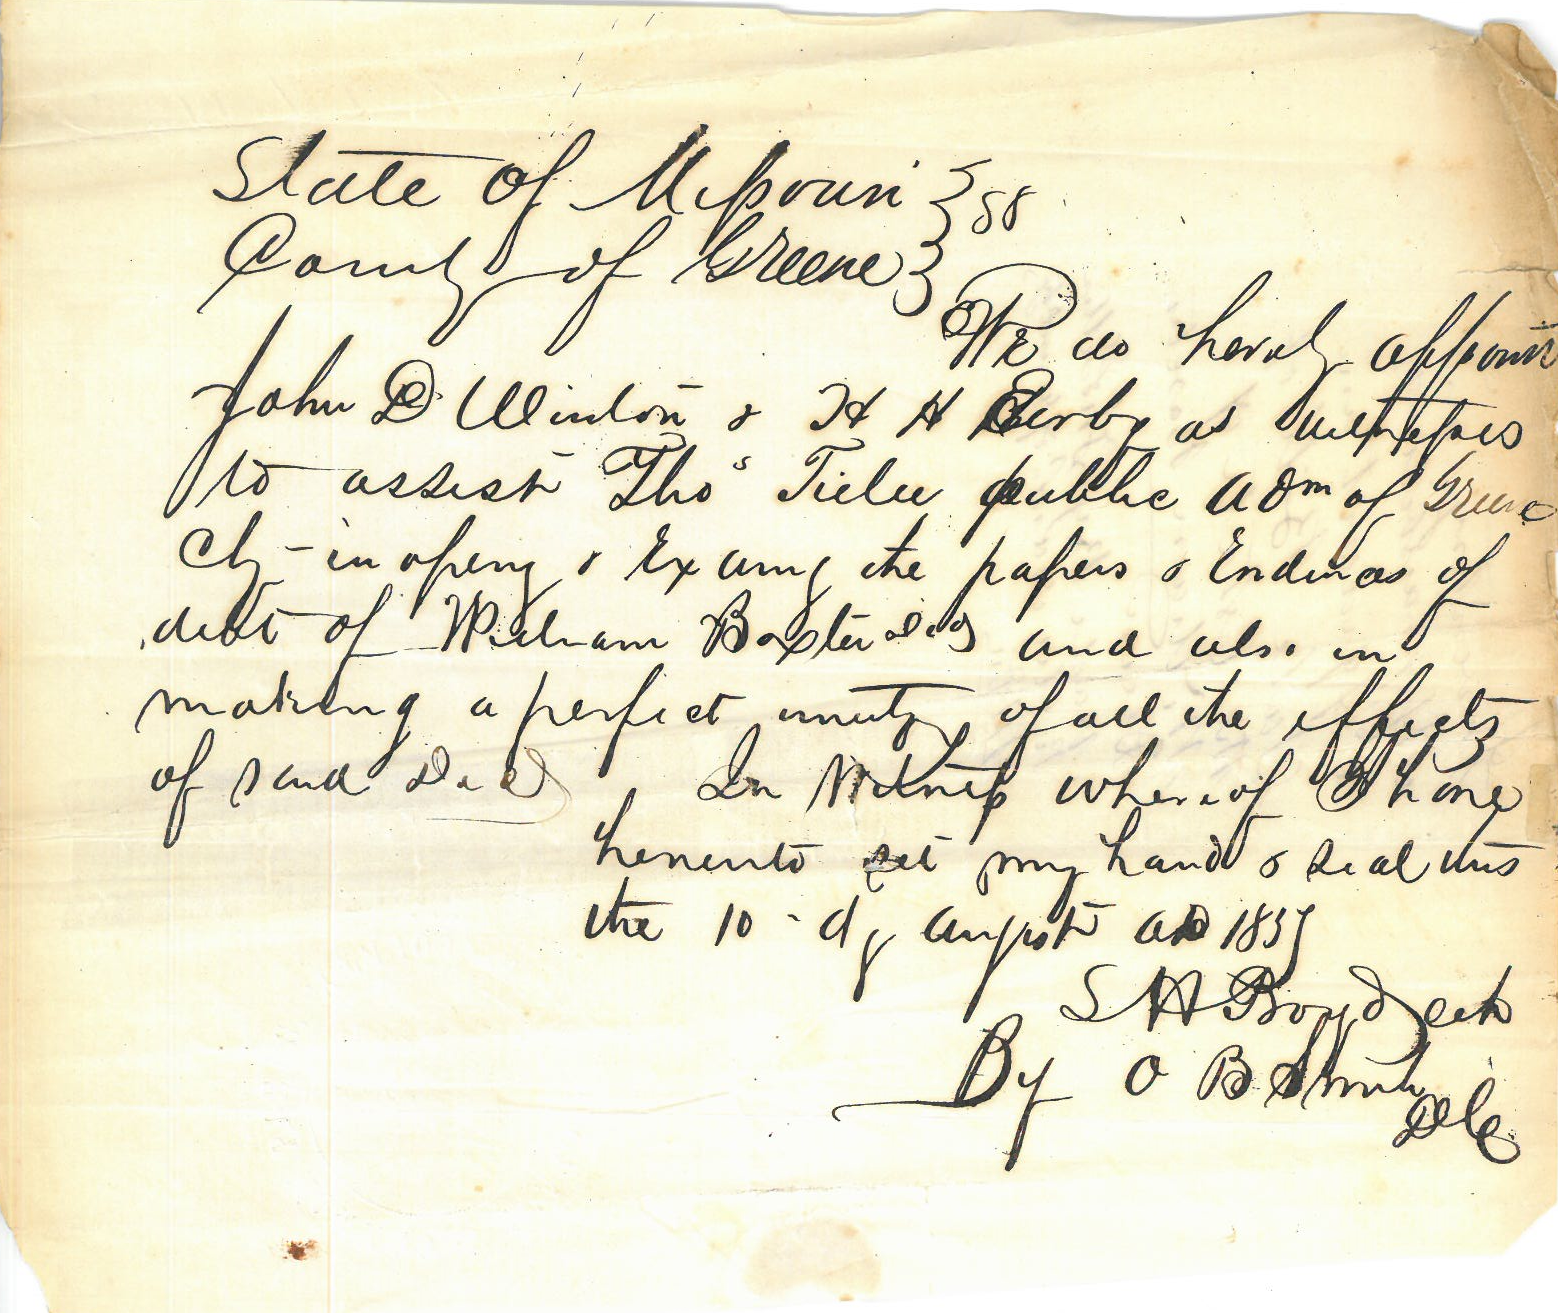 State of Missouri } SS
County of Greene }
We do hereby appoint
John D Winton & H H Derby as witnesses
to assist Thos public adm of Greene
Cty - in openg & Examg the papers & Evidences of
debt of William Baxter decd and also in
making a perfect invty of all the effects
of said decd, In Witness whereof I have
hereunto set my hand & seal this
the 10 - dy August AD 1857
S H Boyd clk
By O B Smith
D C